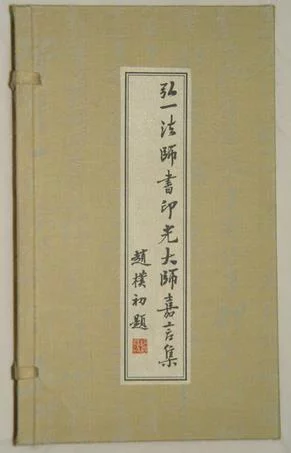 弘一法師書印光大師嘉言集
趙樸初題